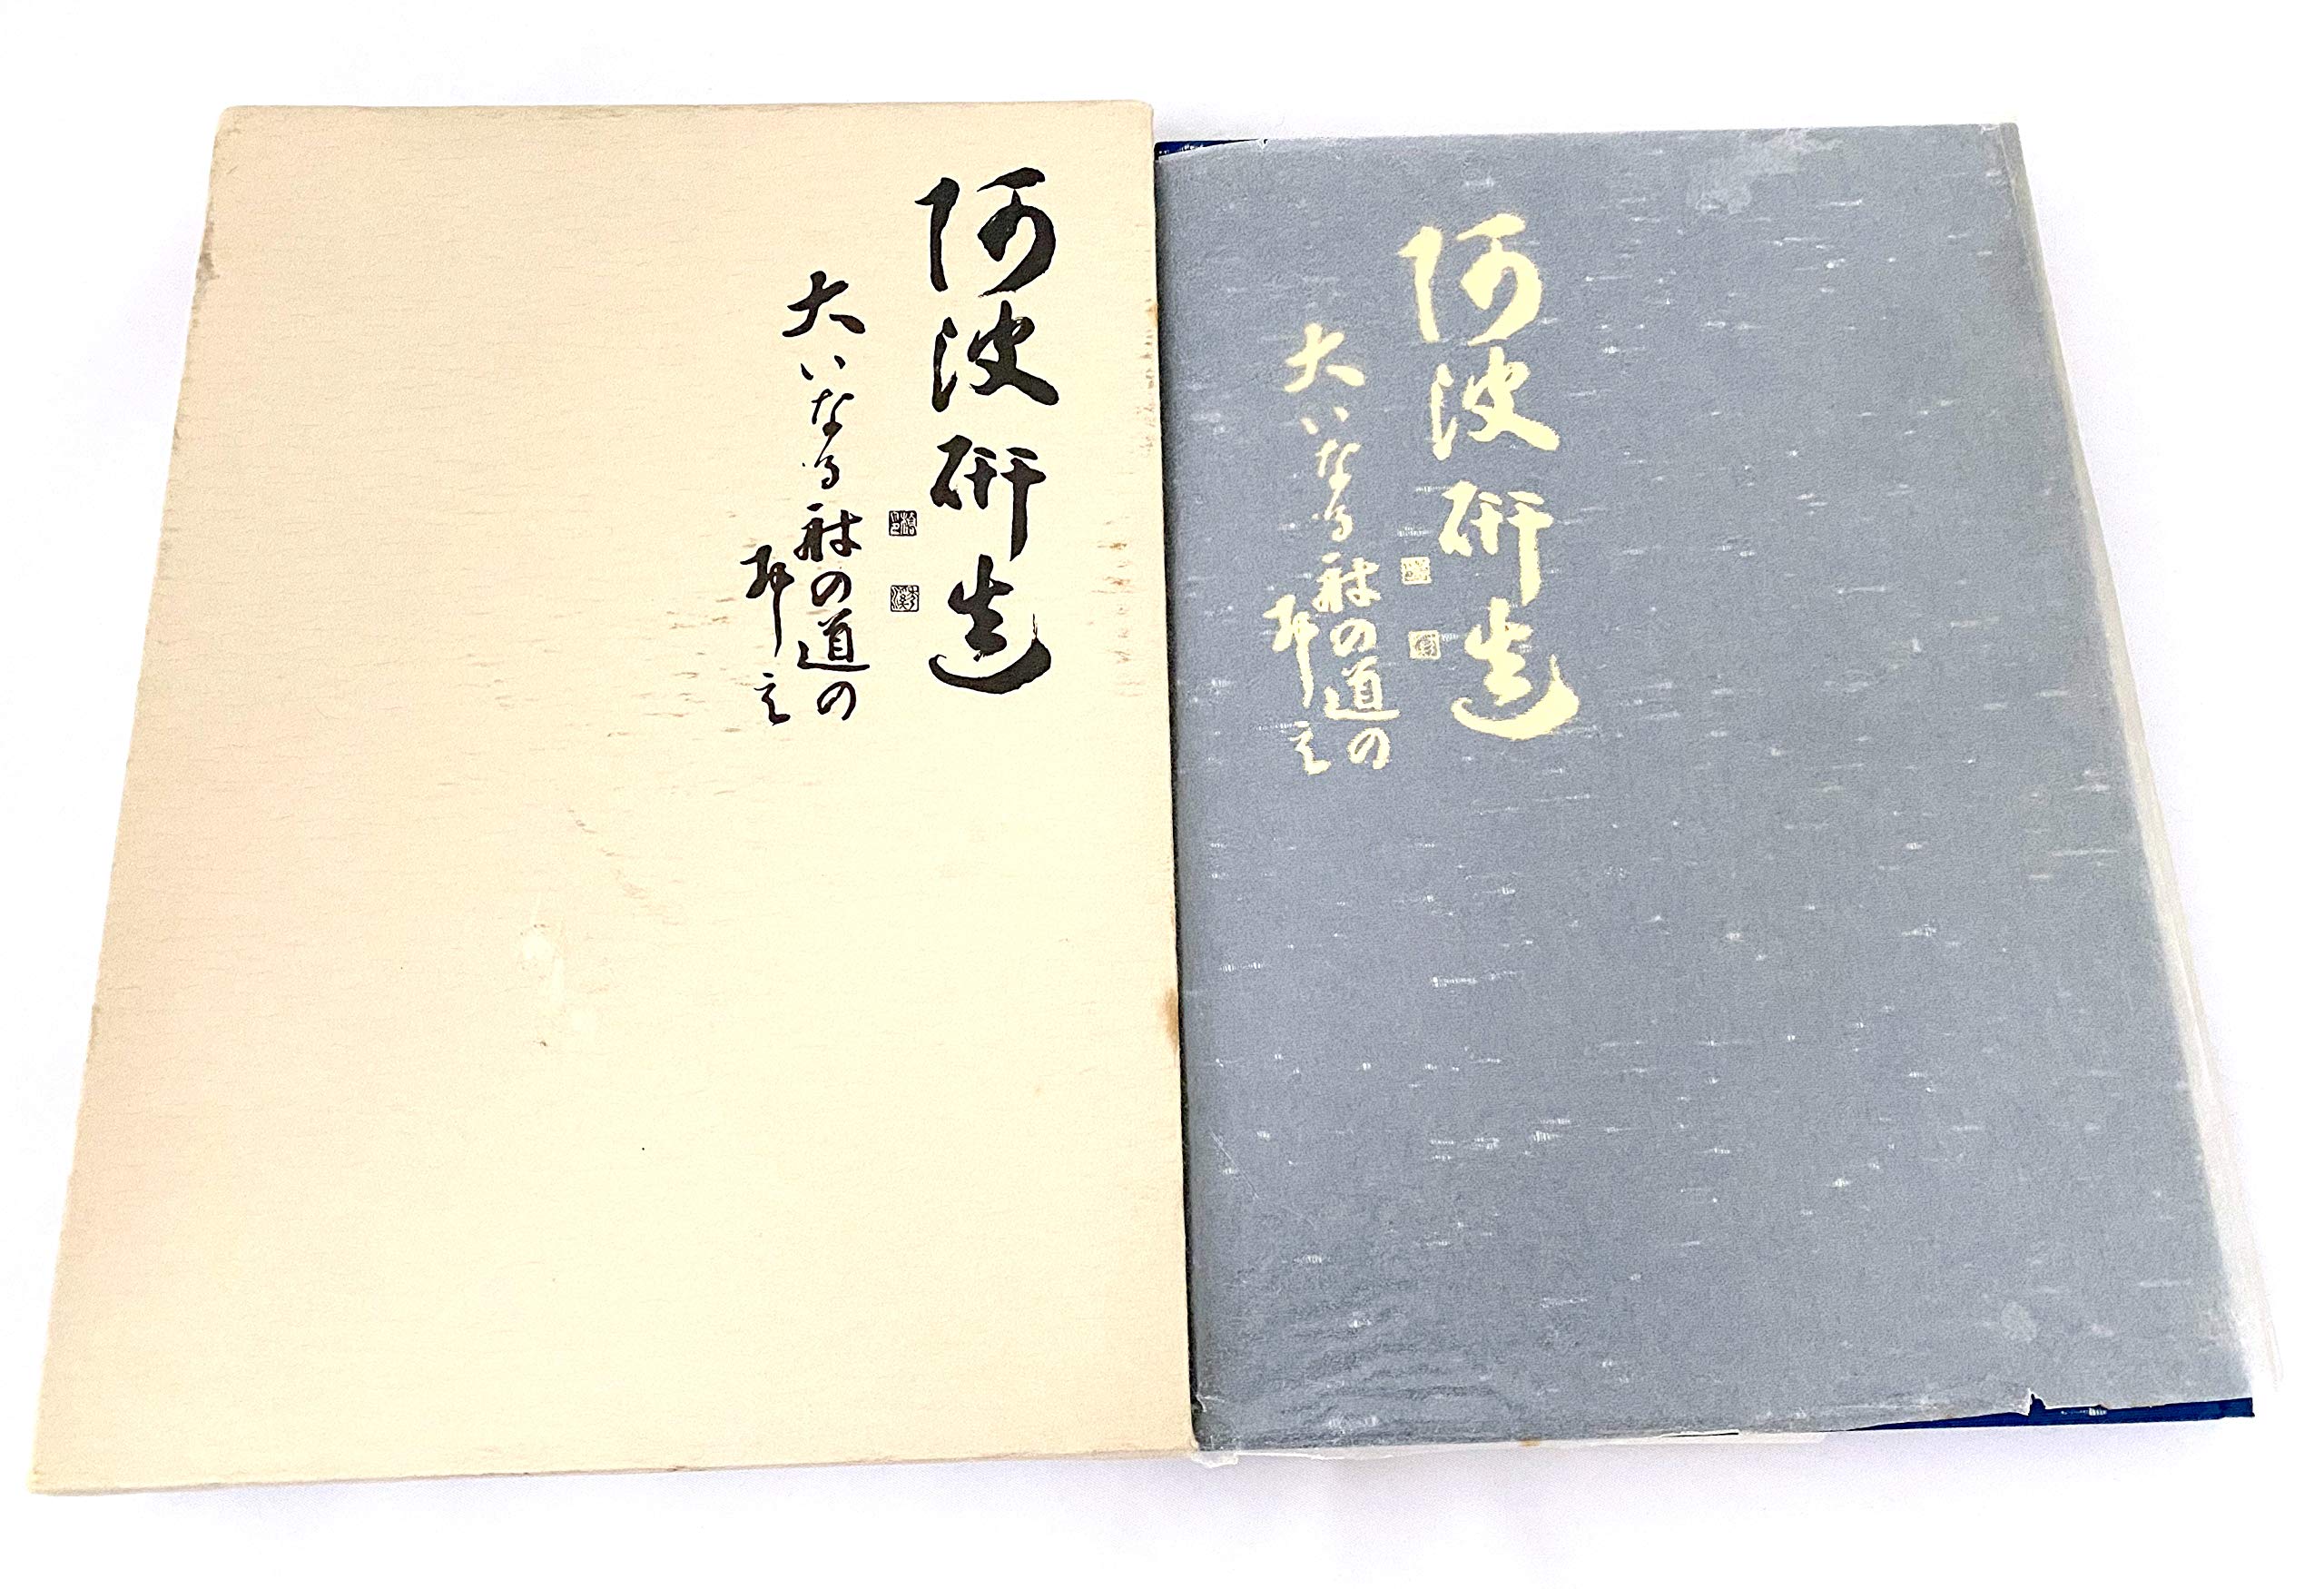 阿波研造
大いなる射の道の
教え
阿波研造
大いなる射の道の
教え